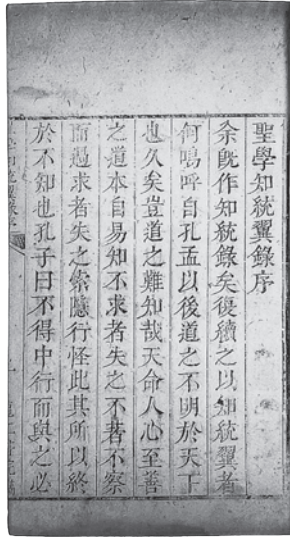 聖學知統翼錄序
余旣作知統錄矣復續之以知統翼者
何嗚呼自孔孟以後道之不明於天下
也久矣豈道之難知哉天命人心至善
之道本自易知不求者失之不著不察
而過求者失之索隱行怪此其所以終
於不知也孔子曰不得中行而與之必